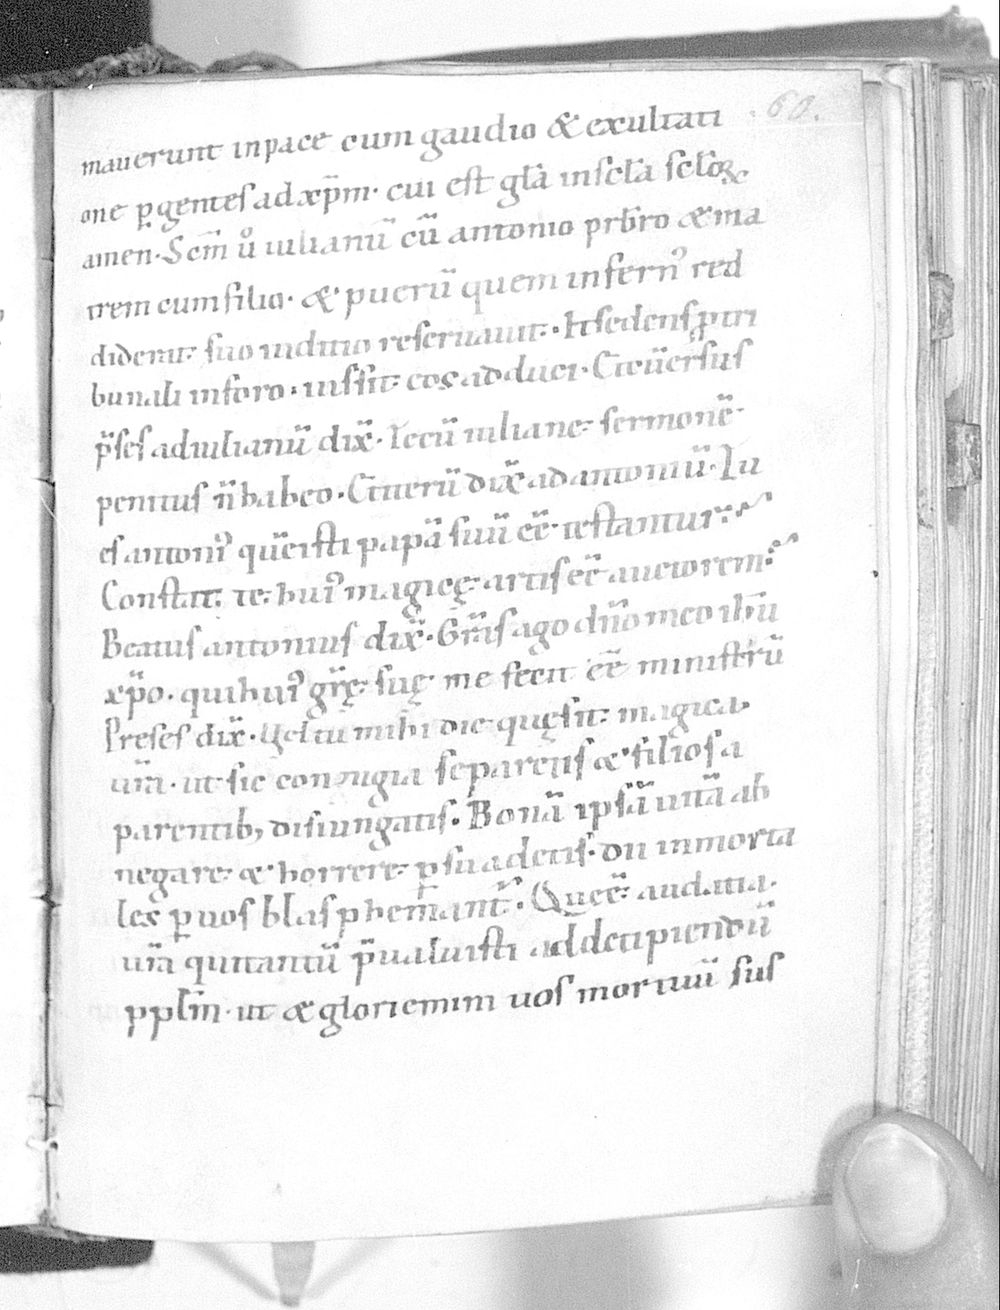 60.
mauerunt inpace cum gaudio & exultati
one ꝑgentes ad xp̄m· cui est gl̃a inscl̃a scl̃oꝝ
amen· Scm̄ u̾ iulianū cū antonio prb̄ro & ma
trem cum filio· & puerū quem infern᾽ red
diderat suo iuditio reseruauit· Et sedens ꝓ tri
bunali inforo· iussit eos adduci· Conuersus
p̄ses ad iulianū dix̄· Tecū iuliane sermonē
penitus n̄ habeo· Ceterū dix̄ ad antoniū· Tu
es antoni᾽ quē isti papā suū eē testantur·
Constat te hui᾽ magicę artis eē auctorem·
Beatus antonius dix̄· Gr̄as ago dn̄o meo ihū
xp̄o· qui hui᾽ gr̄ę suę me fecit eē ministrū
Preses dix̄· Vel tu mihi dic quę sit magica
ur̄a· ut sic coniugia separetis & filios a
parentib; disiungatis· Bonā ipsā uitā ab
negare & horrere ꝑsuadetis· dii inmorta
les ꝑ uos blasphemant᷑· Que ē audatia
ur̄a qui tantū p̄ualuisti addecipiendū
ppl̄m· ut & gloriemini uos mortuū sus